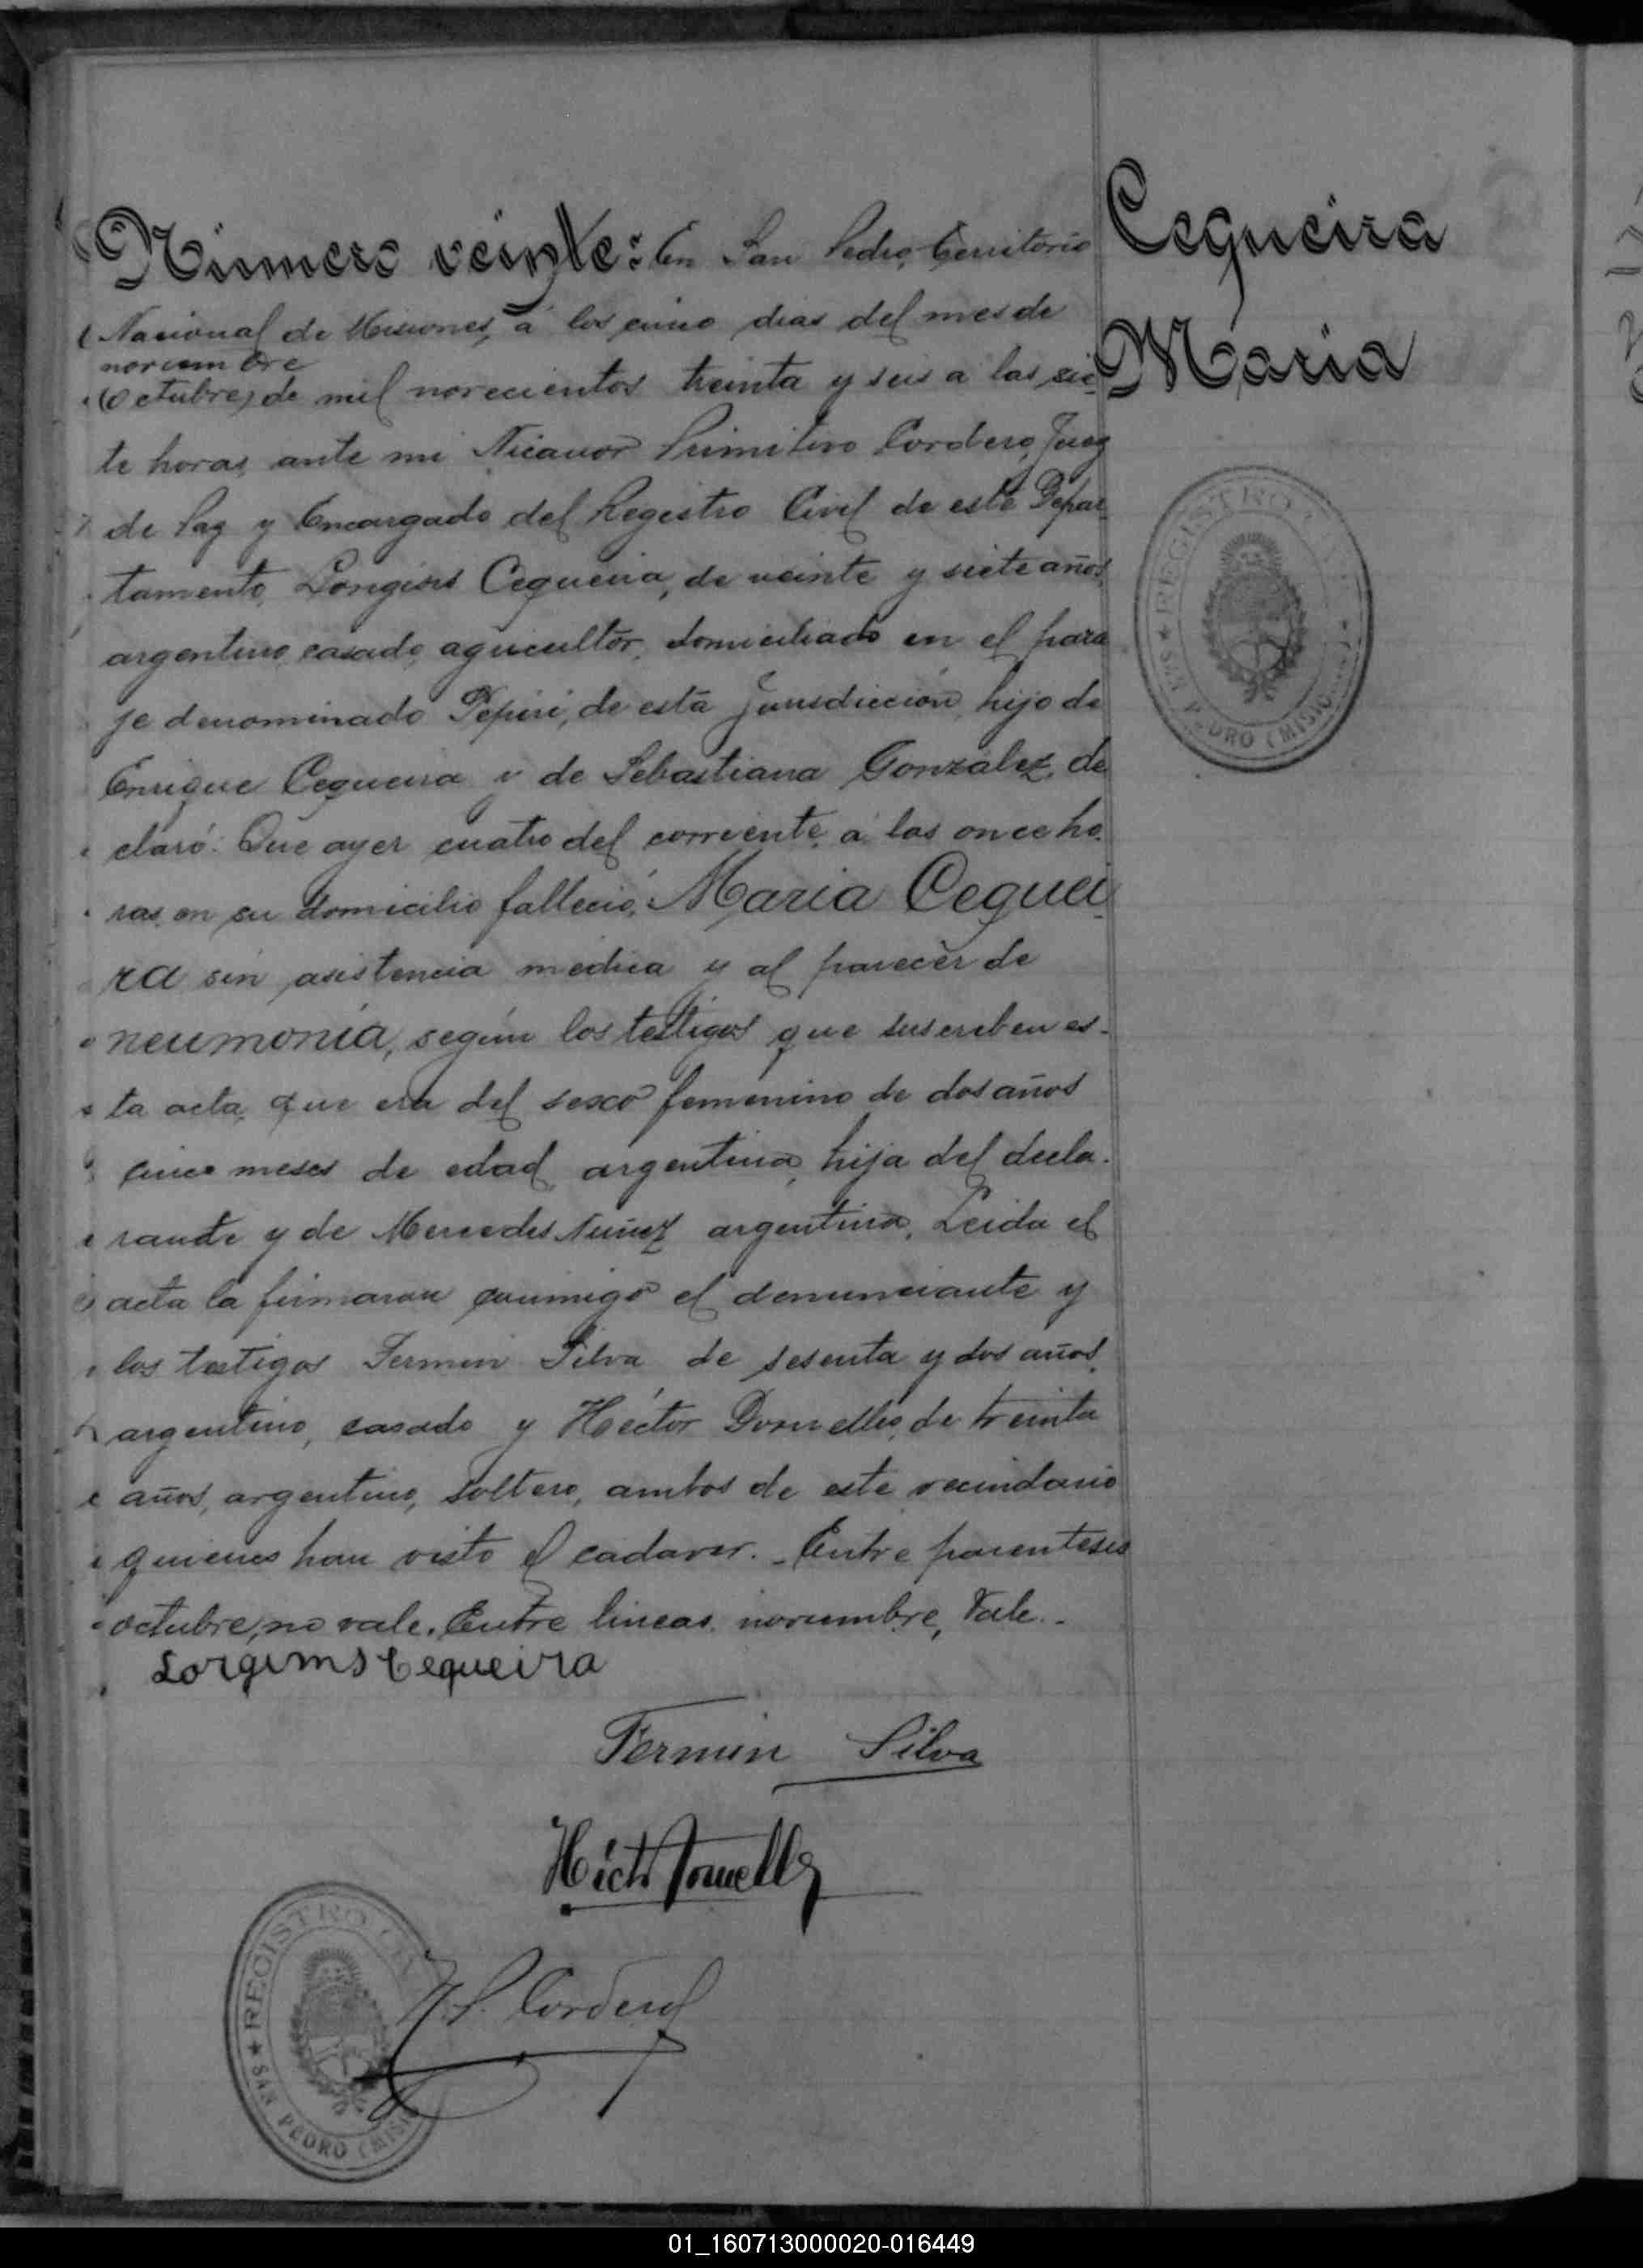 Número veinte: En San Pedro, Territorio
Cequeira
Nacional de Misiones, á los cinco dias del mes de
María
noviembre
(Octubre) de mil novecientos treinta y seis a las sie-
te horas, ante mi Nicanor Primitivo Cordero, Juez
de Paz y Encargado del Registro Civil de este Depar-
tamento, Longinos Cequeira, de veinte y siete años,
argentino, casado, agricultor, domiciliado en el para
je denominado Pepiri, de esta jurisdicción, hijo de
Enrique Cequeira y de Sebastiana González, de
claró: Que ayer cuatro del corriente, a las once ho-
ras, en su domicilio falleció, Maria Cequei-
ra sin asistencia médica y al parecer de
neumonía, según los testigos que suscriben es-
ta acta, que era del sexo femenino de dos años
cinco meses de edad, argentina, hija del decla-
rante y de Mercedes Nuñez argentina. Leida el
acta la firmaron conmigo el denunciante y
los testigos Fermin Silva de sesenta y dos años,
argentino, casado y Héctor Dornelles, de treinta
años, argentino, soltero, ambos de este vecindario
quienes han visto el cadaver. - Entre parentesis
octubre, no vale. Entre lineas, noviembre, Vale.-
REGISTRO
SAN PEDRO (MISIONES)
Longinos Cequeira
Fermin Silva
Héctor Dornelles
N. P. Cordero
REGISTRO
SAN PEDRO (MISI
01_160713000020-016449